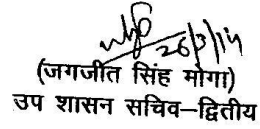 26/3/14
(जगजीत सिंह मोगा)
उप शासन सचिव–द्वितीय